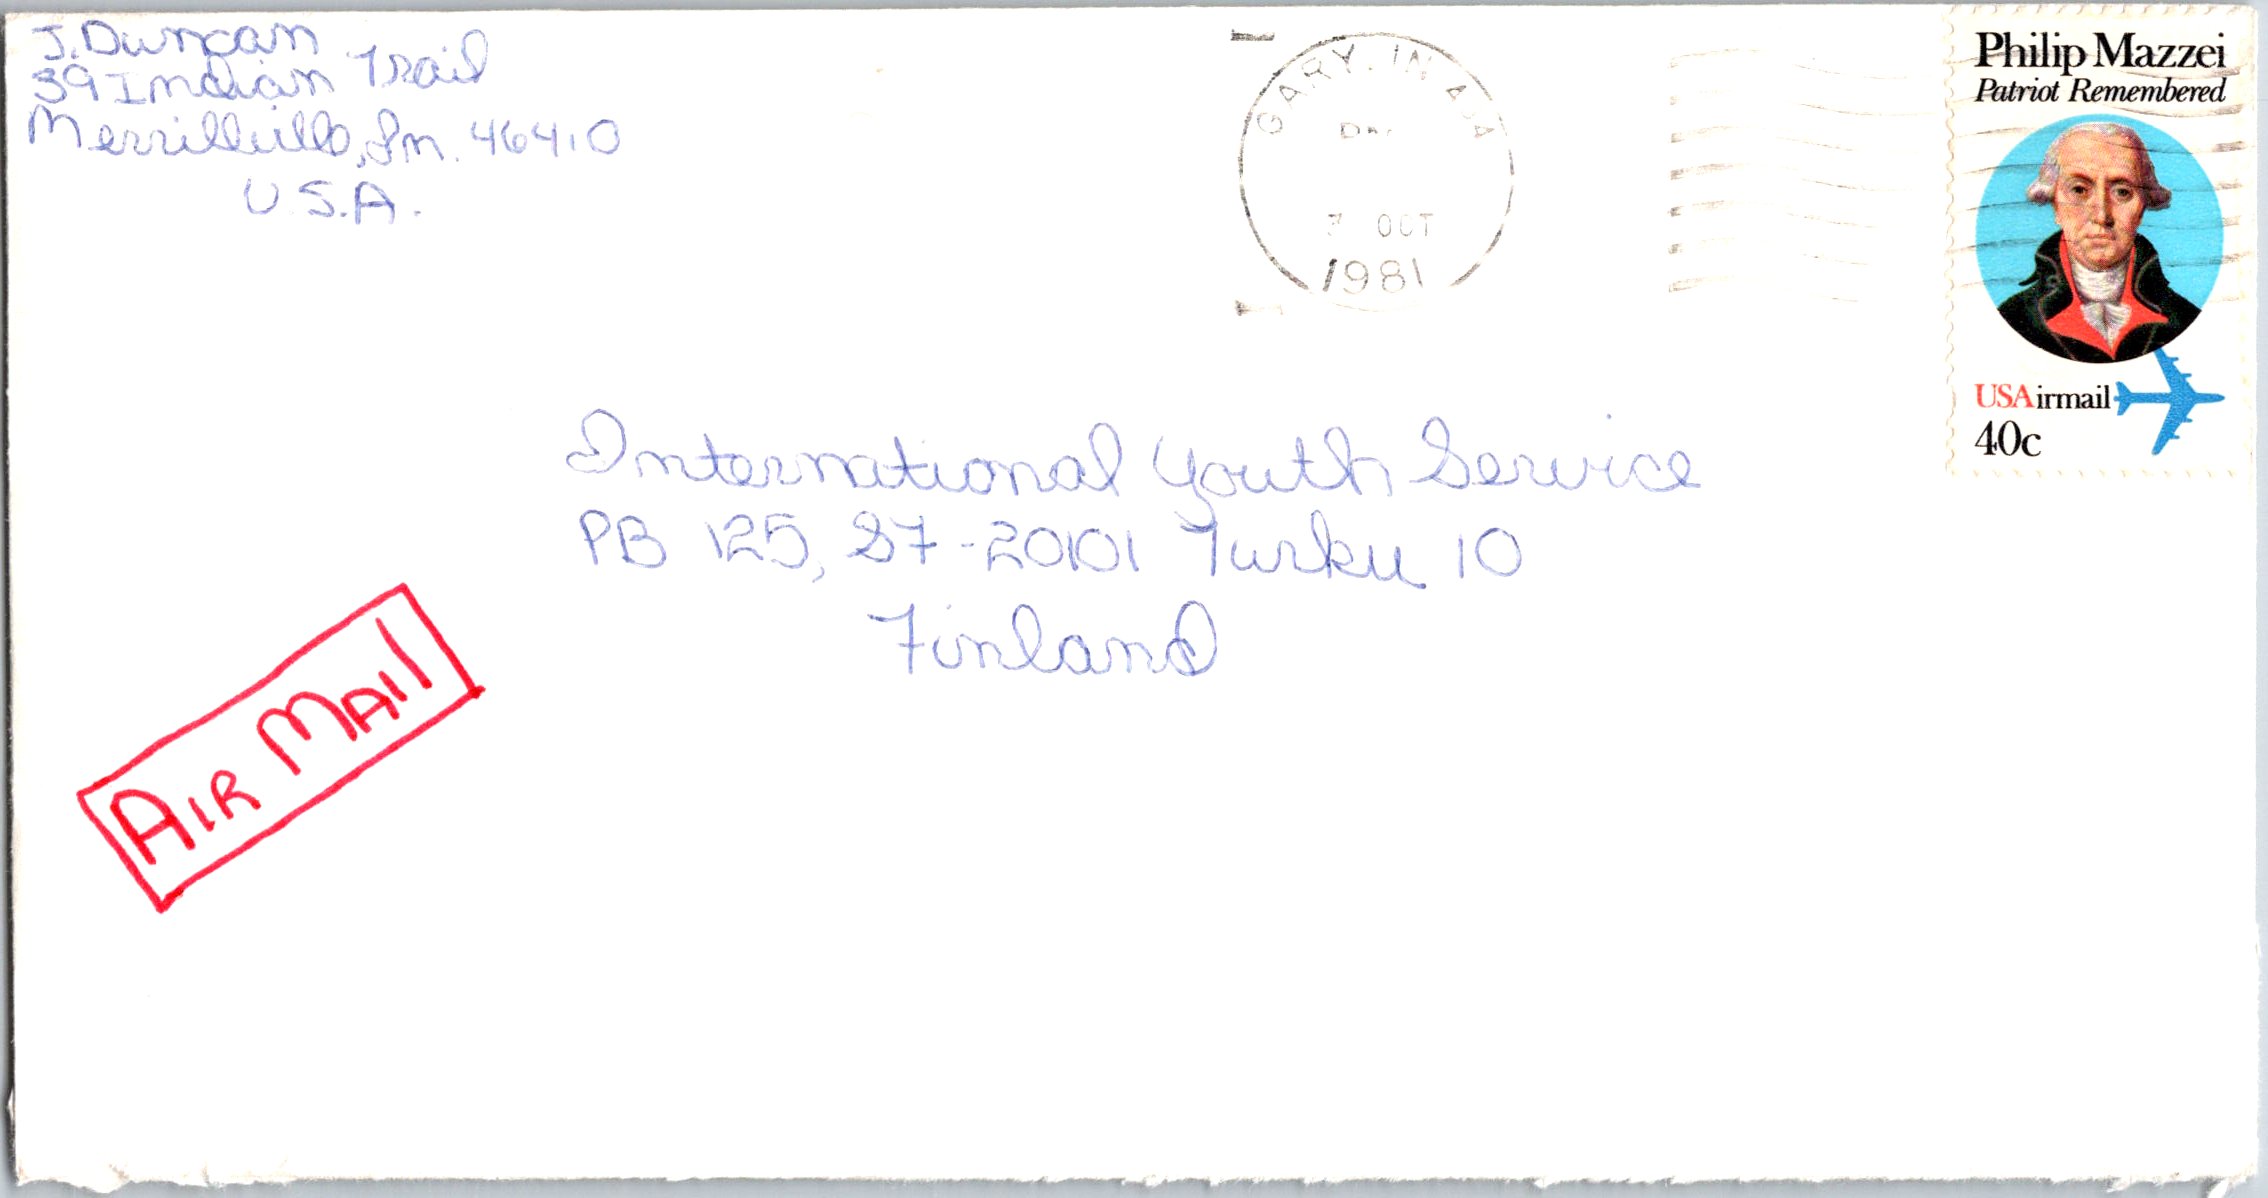 J. Duncan
39 Indian Trail
Merrillville, In. 46410
U.S.A.
GARY, IN
OCT
1981
Philip Mazzei
Patriot Remembered
USAirmail
40c
International Youth Service
PB 125, SF-20101 Turku 10
Finland
AIR MAIL